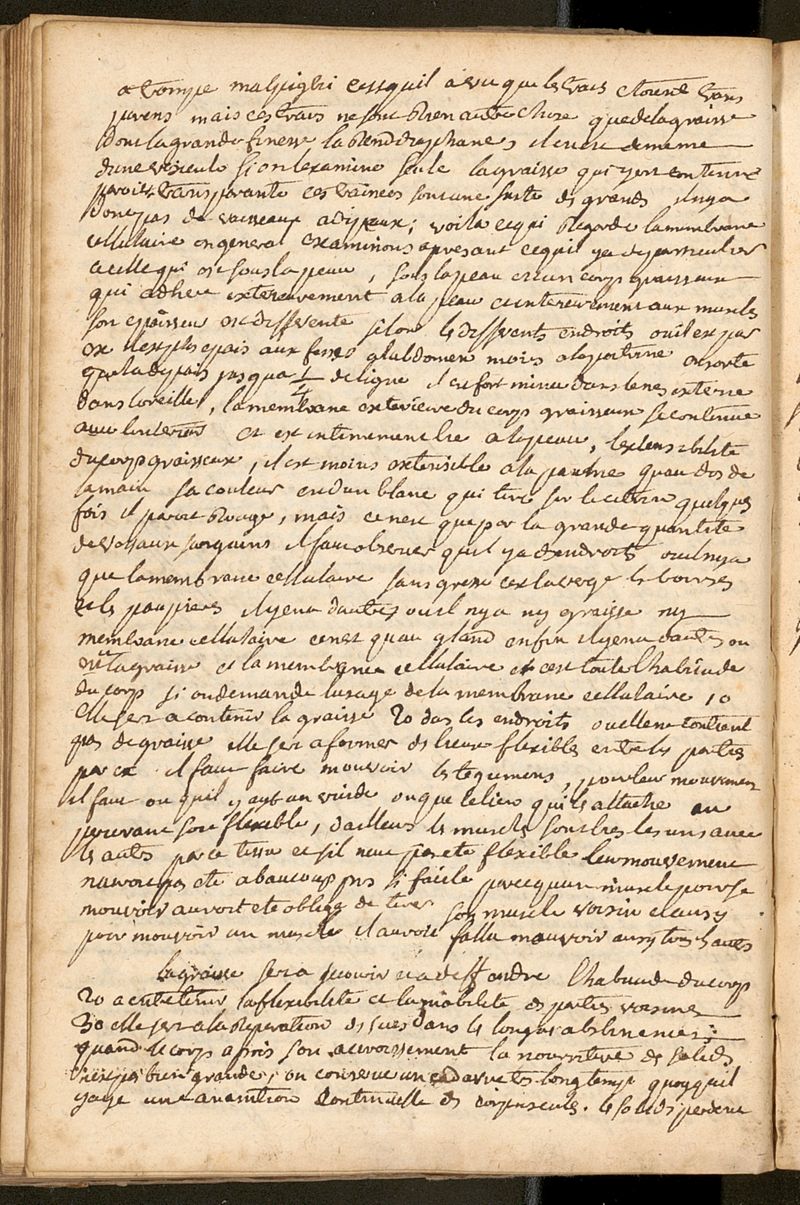 a trompé malpighi cest quil a vu que les vais etoient trans
parens mais ces vais ne sont rien autre chose que de la graisse
dont la grande finesse la rend diaphane, il en est de meme
dune vesicule si on lexamine seule la graisse qui y est contenue
paroit transparante ces trainées sont une suite de grands il ny a
donc pas de vaisseaux adipeux; voila ce qui regarde la membrane
cellulaire en general examinons apresant ce quil y a de particulier
a celle qui est sous la peau, sous la peau est un corps graisseux
qui adhere exterieurement a la peau et interieurement aux muscles
son epaisseur est differente selon les differents endroits ou il est par
ex il est plus epais aux fesses qua labdomen moins a la poitrine en sorte
que la depuis jusqua 1/4 de ligne il est fort mince dans le nes externe
dans loreille, la membrane exterieure du corps graisseux se continue
avec et est intimement lie a la peau, lextensibilité
du corps graisseux, il est moins extensible a la paulme quau dos de
la main sa couleur est dun blanc qui tire sur le citrin quelque
fois il paroit rouge, mais ce nest que par la grande quantité
de vaisseaux sanguins il faut observer quil y a dendroits ou il ny a
que la membrane cellulaire sans gresse cest la verge les bourses
et les paupieres il y en a dautres ou il ny a ny graisse ny
membrane cellulaire ce nest quau gland enfin il y en a dautres ou
est la graisse et la membrane cellulaire et cest toute lhabitude
du corp si on demande lusage de la membrane cellulaire 1o
elle sert a contenir la graisse 2o dans les endroits ou elle ne contient
pas de graisse elle sert a former des lieux flexibles entre les parties
par ex il faut faire mouvoir les tegumens, pour leur mouvement
il faut ou quil y ayt un vuide ou que le lien qui les attache au
soit flexible, dailleurs les muscles sont lies les uns avec
les autres par ce tissu et sil neut pas eté flexible leur mouvement
nauroit pas eté a beaucoup pres si facile parce quun muscle pour se
mouvoir auroit eté obligé de tirer son muscle voisin et ausy
pour mouvoir un muscle il auroit fallu mouvoir ausy tous les autres
la graisse sert a scavoir 1o a deffendre lhabitude du corp
2o a entretenir la flexibilité et la mobilité des parties voisines
3o elle sert a la reparation des sucs dans les longues abstinences:
quand le corps apris son accroissement la nourriture des solides
nest pas bien grande, on conserve un cadavre tres longtemp quoy quil
y aye une continuelle des corpuscules. les solides perdent